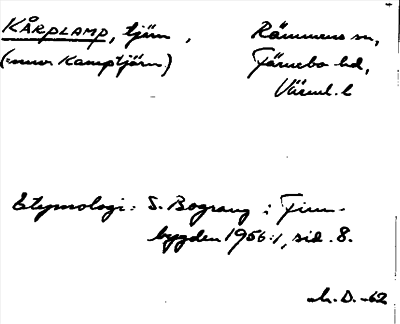 KÅRPLAMP, tjärn, Rämmens sn,
(annor Kamptjärn.) Färnebo hd,
Värml. l
Etymologi: S. Bograng i Finn-
bygden 1956:1, sid. 8.
D. -62